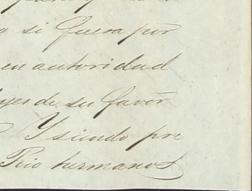 o si fuera por
en autoridad
de su favor
Y siendo pre
Trio hermanos